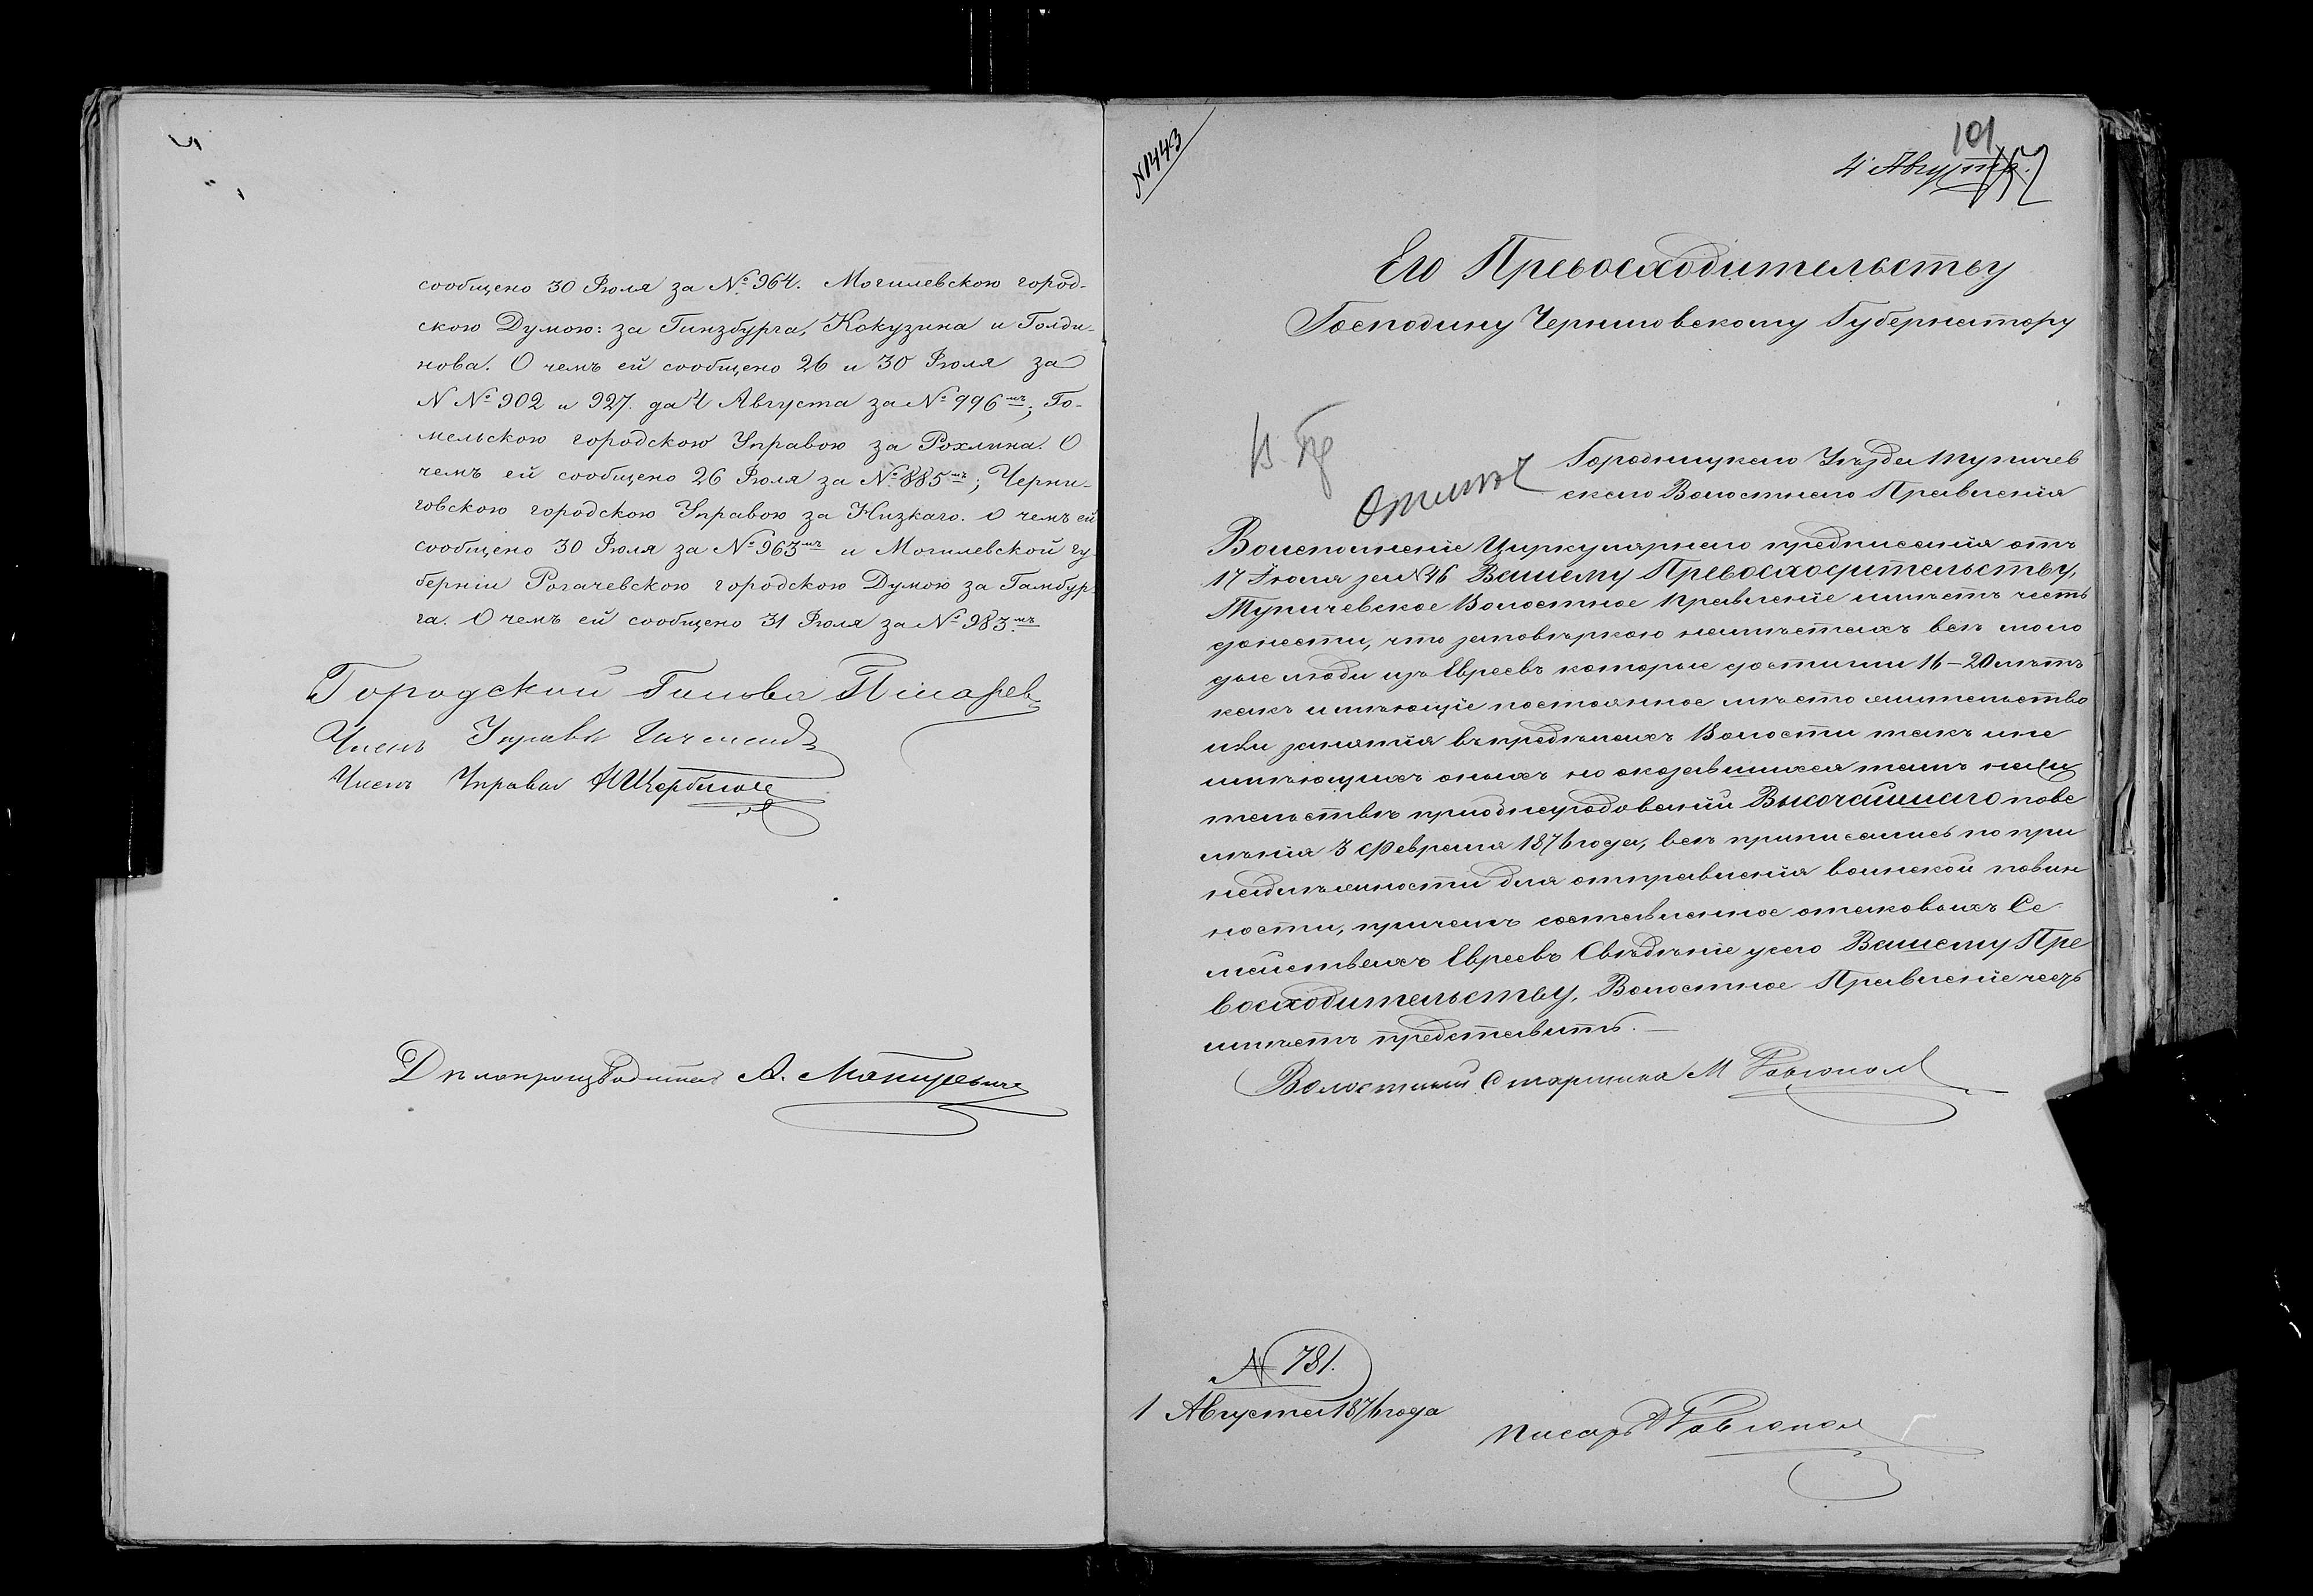 сообщено 30 Іюля за № 964. Могилевскою город-
скою Думою: за Гинзбурга, Кокузина и Голди-
нова. О чемъ ей сообщено 26 и 30 Іюля за
N№ 902 и 927. да 4 Августа за № 996мъ; Го-
мельскою городскою Управою за Рохлина. О
чемъ ей сообщено 26 Іюля за № 885мъ; Черни-
говскою городскою Управою за Низкаго. О чемъ ей
сообщено 30 Іюля за № 963мъ и Могилевской гу-
берніи Рогачевскою городскою Думою за Гамбур-
га. О чемъ ей сообщено 31 Іюля за № 983мъ
Городской Голова
Членъ Управы
Членъ Управы
Дѣлопроизводитель А.
N 1443
101
4 Августа.
Его Превосходительству
Господину Черниговскому Губернатору
Городницкаго Уѣзда Тупичев
скаго Волостнаго Правленія
Воисполненіе Циркулярнаго предписанія отъ
17 Іюля за N 46 Вашему Превосходительству,
Тупичевское Волостное Правленіе имѣетъ честь
донести, что заповѣркою намѣстахъ всѣ моло
дые люди изъ Евреевъ которые достигли 16-20 лѣтъ
какъ имѣющіе постоянное мѣсто жительство
или занятія въпредѣлахъ Волости такъ ине
имѣющихъ оныхъ но оказавшихся тамъ нажи
тельствѣ приобнародованіи Высочайшаго пове
лѣнія 3 Февраля 1876 года, всѣ приписались по при
надлѣжности для отправленія воинской повин
ности, причемъ составленное отаковыхъ Се
мействахъ Евреевъ Свѣдѣніе усего Вашему Пре
восходительству, Волостное Правленіе честь
имѣетъ представить.
Волостный Старшина М
N 781.
1 Августа 1876 года
Писарь